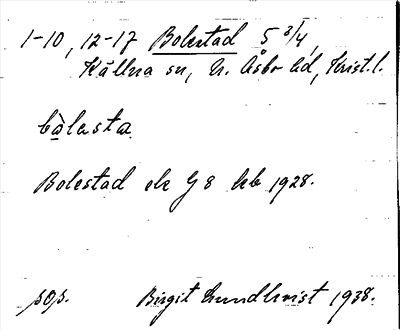 1-10, 12-17 Bolestad 5 3/4,
Källna sn, N. Åsbo hd, Krist. l.
bòlesta
Bolestad ek G 8 kb 1928.
pop. Birgit Lundkvist 1938.